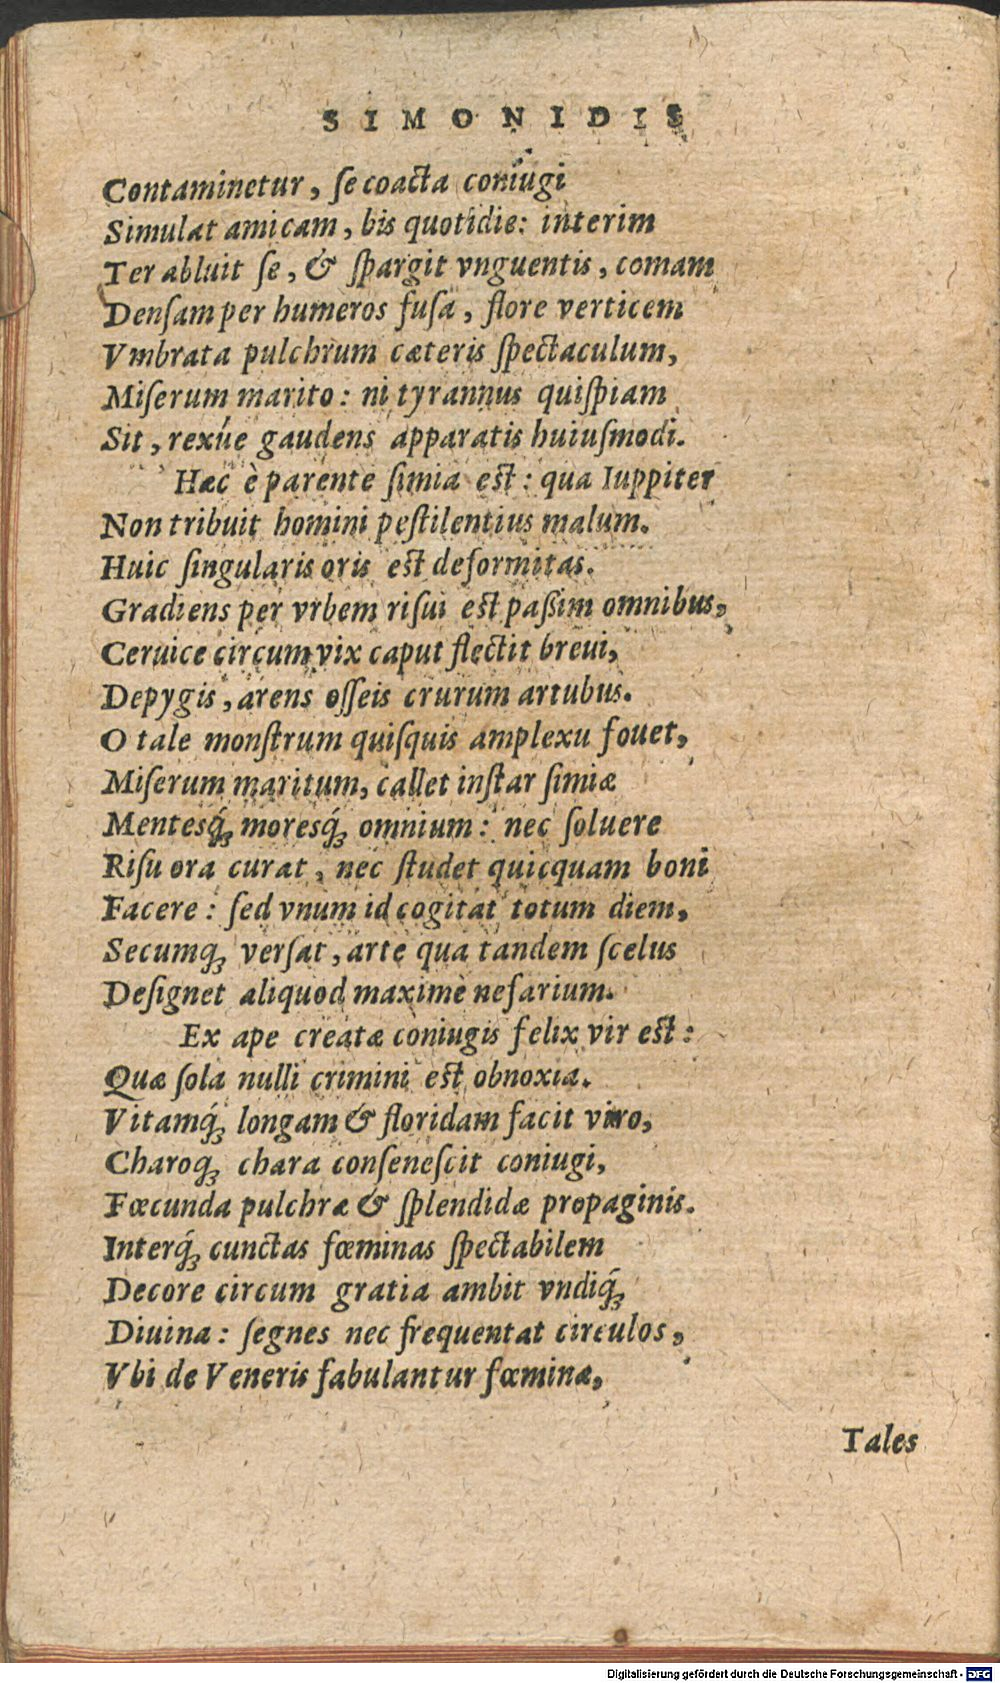 SIMONIDIS
Contaminetur, ſe coacta coniugi
Simulat amicam, bis quotidie: interim
Ter abluit ſe, & ſpargit vnguentis, comam
Denſam per humeros fuſa, flore verticem
Vmbrata pulchrum cæteris ſpectaculum,
Miſerum marito: ni tyrannus quiſpiam
Sit, rexúe gaudens apparatis huiuſmodi.
Hæc è parente ſimia est: qua Iuppiter
Non tribuit homini peſtilentius malum.
Huic ſingularis oris est deformitas.
Gradiens per vrbem riſui est paßim omnibus,
Ceruice circum vix caput flectit breui,
Depygis, arens oſſeis crurum artubus.
O tale monſtrum quiſquis amplexu fouet,
Miſerum maritum, callet inſtar ſimiæ
Mentesq́; moresq́; omnium: nec ſoluere
Riſu ora curat, nec ſtudet quicquam boni
Facere: ſed vnum id cogitat totum diem,
Secumq; verſat, arte qua tandem ſcelus
Deſignet aliquod maximè nefarium.
Ex ape creatæ coniugis felix vir est:
Quæ ſola nulli crimini est obnoxia.
Vitamq́; longam & floridam facit viro,
Charoq; chara conſeneſcit coniugi,
Fœcunda pulchræ & ſplendidæ propaginis.
Interq́; cunctas fœminas ſpectabilem
Decore circum gratia ambit vndiq́;
Diuina: ſegnes nec frequentat circulos,
Vbi de Veneris fabulantur fœminæ,
Tales
Digitalisierung gefördert durch die Deutsche Forschungsgemeinschaft - DFG